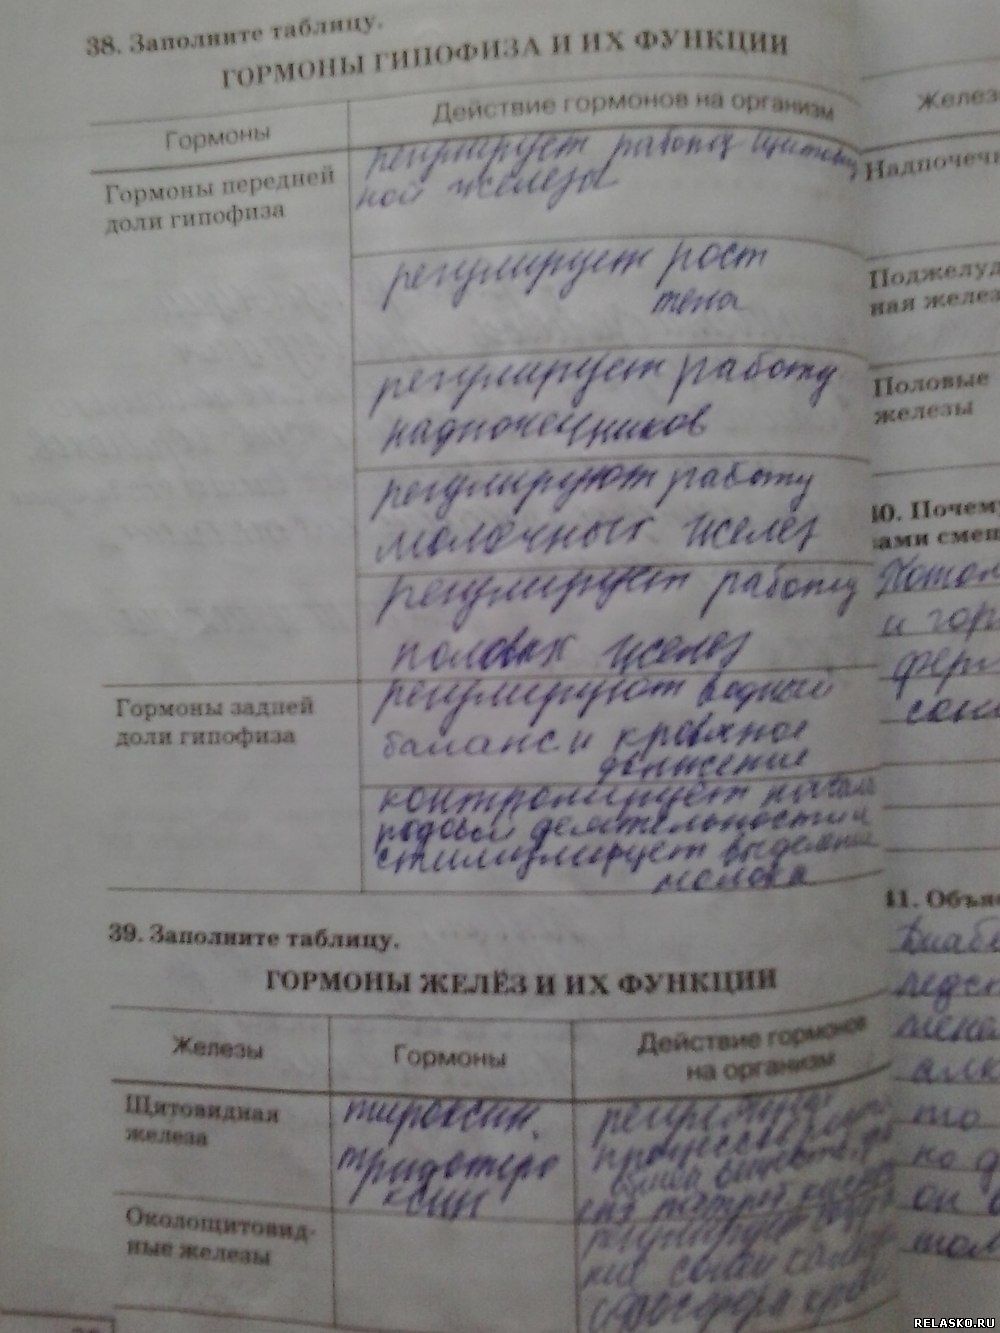 38. Заполните таблицу.
ГОРМОНЫ ГИПОФИЗА И ИХ ФУНКЦИИ
Гормоны
Действие гормонов на организм
Гормоны передней
доли гипофиза
регулирует работу щитовид
ной железы
регулирует рост
тела
регулирует работу
надпочечников
регулируют работу
молочных желез
регулирует работу
половых желез
Гормоны задней
доли гипофиза
регулируют водный
баланс и кровяное
давление
контролирует начало
родовой деятельности и
стимулирует выделение
молока
39. Заполните таблицу.
ГОРМОНЫ ЖЕЛЁЗ И ИХ ФУНКЦИИ
Железы
Гормоны
Действие гормонов
на организм
Щитовидная
железа
тироксин,
процессы
Околощитовид-
ные железы
регулирует
фосфора
Желез
Надпочечн
Поджелуд
ная желез
Половые
железы
40. Почему
зами смеш
Потом
и гор
фери
41. Объя
Диабе
алк
то
но д
он
RELASKO.RU